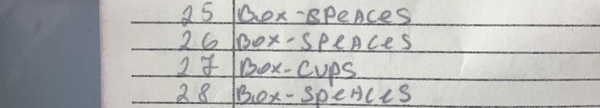 25 Box-SPeAceS
26 Box-SPeAceS
27 Box-Cups
28 Box-SpeAceS